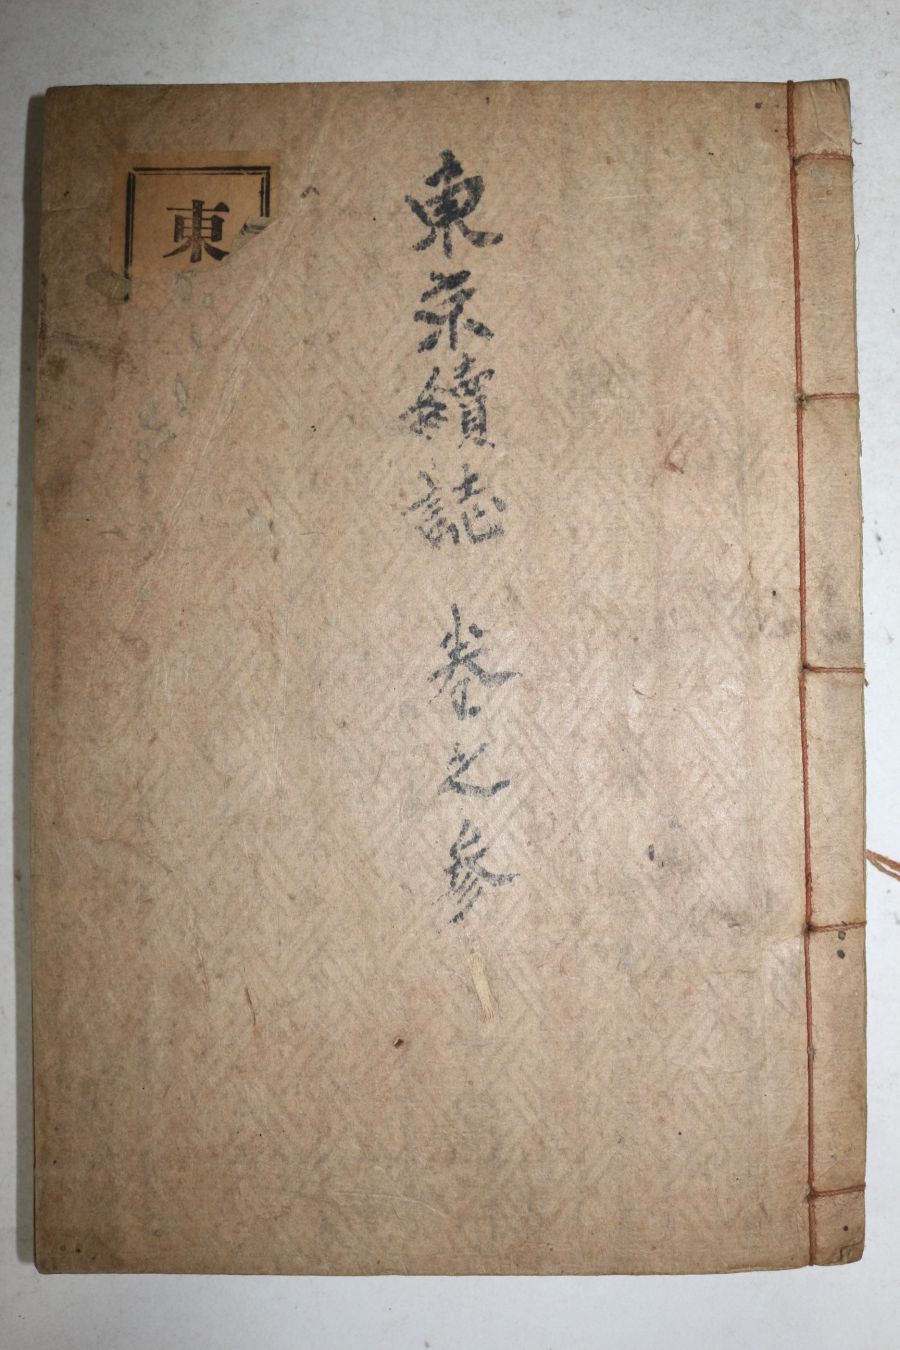 東京續誌 卷之參
東